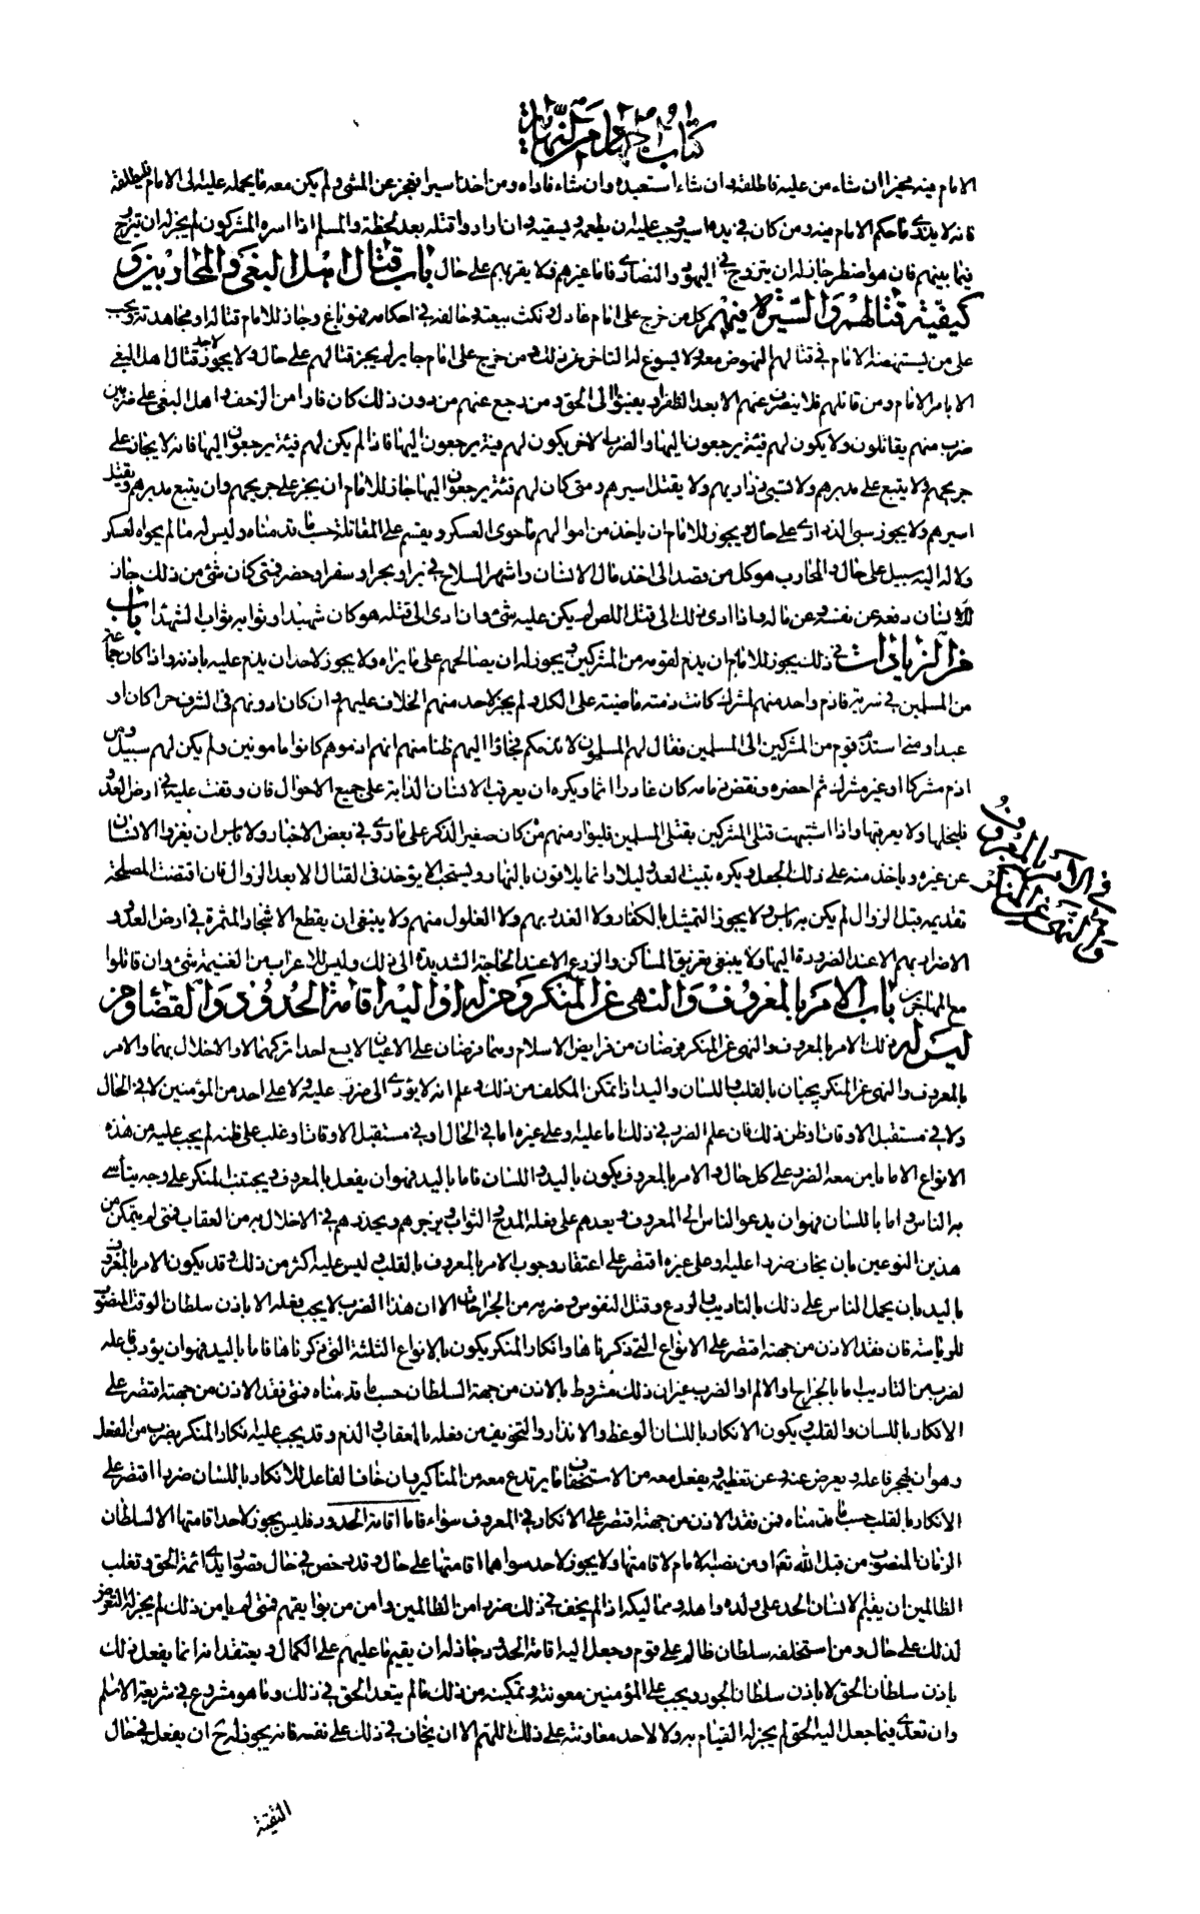 كتاب الجهاد من النهاية
الامام فيه مخيرا ان شاء من عليه فاطلقه وان شاء استعبده وان شاء فاداه ومن اخذ اسيرا فعجز عن المشي ولم يكن معه ما يحمله عليه الى الامام فليطلقه
فانه لا يدرى ما حكم الامام فيه ومن كان في يده اسير وجب عليه ان يطعمه ويسقيه وان اراد وا قتله بعد لحظة والمسلم اذا اسره المشركون لم يجز له ان يتزوج
فيما بينهم فان هو اضطر جاز له ان يتزوج في اليهود والنصارى فاما غيرهم فلا يقربهم على حال باب قتال اهل البغي والمحاربين و
كيفية قتالهم والسيرة فيهم كل من خرج على امام عادل ونكث بيعته وخالفه في احكامه فهو باغ وجاز للامام قتاله ومجاهدته ويجب
على من يستنهضه الامام في قتالهم النهوض معه ولا يسوغ له التاخر عن ذلك ومن خرج على امام جاير لم يجز قتالهم على حال ولا يجوز لاحد قتال اهل البغي
الا بامر الامام ومن قاتلهم فلا ينصرف عنهم الا بعد الظفر او يفيئوا الى الحق ومن رجع عنهم من دون ذلك كان فارا من الزحف واهل البغي على ضربين
ضرب منهم يقاتلون ولا يكون لهم فئة يرجعون اليها والضرب الاخر يكون لهم فئة يرجعون اليها فاذا لم يكن لهم فيئة يرجعون اليها فانه لا يجاز على
جريحهم ولا يتبع على مدبرهم ولا تسبى ذراريهم ولا يقتل اسيرهم ومتى كان لهم فئة يرجعون اليها جاز للامام ان يجيز على جريحهم وان يتبع مدبرهم ويقتل
اسيرهم ولا يجوز سبي الذراري على حال ويجوز للامام ان ياخذ من اموالهم ما حوى العسكر ويقسم على المقاتلة حسب ما قدمناه وليس له ما لم يحوه العسكر
ولا له اليه سبيل على حال والمحارب هو كل من قصد الى اخذ مال الانسان واشهر السلاح في بر او بحر او سفر او حضر فمتى كان شئ من ذلك جاز
للانسان دفعه عن نفسه وعن ماله واذا ادى ذلك الى قتل اللص لم يكن عليه شئ وان ادى الى قتله هو كان شهيدا وثوابه ثواب الشهداء باب
من الزيادات في ذلك يجوز للامام ان يذم لقوم من المشركين ويجوز له ان يصالحهم على ما يراه ولا يجوز لاحد ان يذم عليه باذنه واذا كان جماعة
من المسلمين في سرية فاذم واحد منهم لمشرك كانت ذمته ماضية على الكل ولم يجز لاحد منهم الخلاف عليهم وان كان ادونهم في الشرف حرا كان او
عبدا ومتى استذم قوم من المشركين الى المسلمين فقال لهم المسلمون لا نذمكم فجاؤا اليهم ظنا منهم انهم اذموهم كانوا مامونين ولم يكن لهم سبيل ومن
اذم مشركا او غير مشرك ثم احضره ونقض ذمامه كان غادرا اثما ويكره ان يعرقب الانسان الدابة على جميع الاحوال فان وقفت عليه في ارض العدو
فليخلها ولا يعرقبها واذا اشتبهت قتلى المشركين بقتلى المسلمين فليوار منهم من كان صغير الذكر على ما روى في بعض الاخبار ولا باس ان يغزو الانسان
عن غيره وياخذ منه على ذلك الجعل ويكره تبييت العدو ليلا وانما يلاقون بالنهار ويستحب الا يؤخذ في القتال الا بعد الزوال فان اقتضت المصلحة
تقديمه قبل الزوال لم يكن به باس ولا يجوز التمثيل بالكفار ولا الغدر بهم ولا الغلول منهم ولا ينبغي ان يقطع الاشجار المثمرة في ارض العدو
الاضرار بهم الا عند الضرورة اليها ولا ينبغي تغريق المساكن والزرع الا عند الحاجة الشديدة الى ذلك وليس للاعراب من الغنيمة شئ وان قاتلوا
مع المهاجرين باب الامر بالمعروف والنهي عن المنكر ومن له او اليه اقامة الحدود والقضاء ومن
ليس له ذلك الامر بالمعروف والنهي عن المنكر فرضان من فرايض الاسلام وهما فرضان على الاعيان لا يسع احدا تركهما والاخلال بهما والامر
بالمعروف والنهي عن المنكر يجبان بالقلب واللسان واليد اذا تمكن المكلف من ذلك وعلم انه لا يؤدى الى ضرر عليه ولا على احد من المؤمنين لا في الحال
ولا في مستقبل الاوقات او ظن ذلك فان علم الضرر في ذلك اما عليه وعلى غيره اما في الحال او في مستقبل الاوقات او غلب على ظنه لم يجب عليه من هذه
الانواع الا ما يامن معه الضرر على كل حال والامر بالمعروف يكون باليد واللسان فاما باليد فهو ان يفعل المعروف ويجتنب المنكر على وجه يتأسى
به الناس واما باللسان فهو ان يدعو الناس الى المعروف ويعدهم على فعله المدح والثواب ويزجرهم ويحذرهم في الاخلال به من العقاب فمتى لم يتمكن من
هذين النوعين بان يخاف ضررا عليه وعلى غيره اقتصر على اعتقاد وجوب الامر بالمعروف بالقلب وليس عليه اكثر من ذلك وقد يكون الامر بالمعروف
باليد بان يحمل الناس على ذلك بالتاديب والردع وقتل النفوس وضرب من الجراحات الا ان هذا الضرب لا يجب فعله الا باذن سلطان الوقت المنصوب
للرياسة فان فقد الاذن من جهته اقتصر على الانواع التي ذكرناها وانكار المنكر يكون بالانواع الثلثة التي ذكرناها فاما باليد فهو ان يؤدب فاعله
لضرب من التاديب اما بالجراح او الالم او الضرب غير ان ذلك مشروط بالاذن من جهة السلطان حسب ما قدمناه فمتى فقد الاذن من جهته اقتصر على
الانكار باللسان والقلب ويكون الانكار باللسان الوعظ والانذار والتخويف من فعله بالعقاب والذم وقد يجب عليه انكار المنكر بضرب من الفعل
وهو ان يهجر فاعله ويعرض عنه وعن تعظيمه ويفعل معه من الاستخفاف ما يرتدع معه من المناكير وان خاف الفاعل للانكار باللسان ضررا اقتصر على
الانكار بالقلب حسب ما قدمناه فمن فقد الاذن من جهته اقتصر على الانكار في المعروف سواء فاما اقامة الحدود فليس يجوز لاحد اقامتها الا لسلطان
الزمان المنصوب من قبل الله تعالى او من نصبه الامام لاقامتها ولا يجوز لاحد سواهما اقامتها على حال وقد رخص في حال قصور ايدى ائمة الحق وتغلب
الظالمين ان يقيم الانسان الحد على ولده واهله ومماليكه اذا لم يخف في ذلك ضررا من الظالمين وامن من بوايقهم فمتى لم يامن ذلك لم يجز له التعرض
لذلك على حال ومن استخلفه سلطان ظالم على قوم وجعل اليه اقامة الحدود جاز له ان يقيمها عليهم على الكمال ويعتقد انه انما يفعل ذلك
باذن سلطان الحق لا باذن سلطان الجور ويجب على المؤمنين معونته وتمكينه من ذلك ما لم يتعد الحق في ذلك وما هو مشروع في شريعة الاسلام
وان تعدى فيما جعل اليه الحق لم يجز له القيام به ولا لاحد معاونته على ذلك اللهم الا ان يخاف في ذلك على نفسه فانه يجوز له ح ان يفعل في حال
التقية
في الامر بالمعروف
والنهي عن المنكر